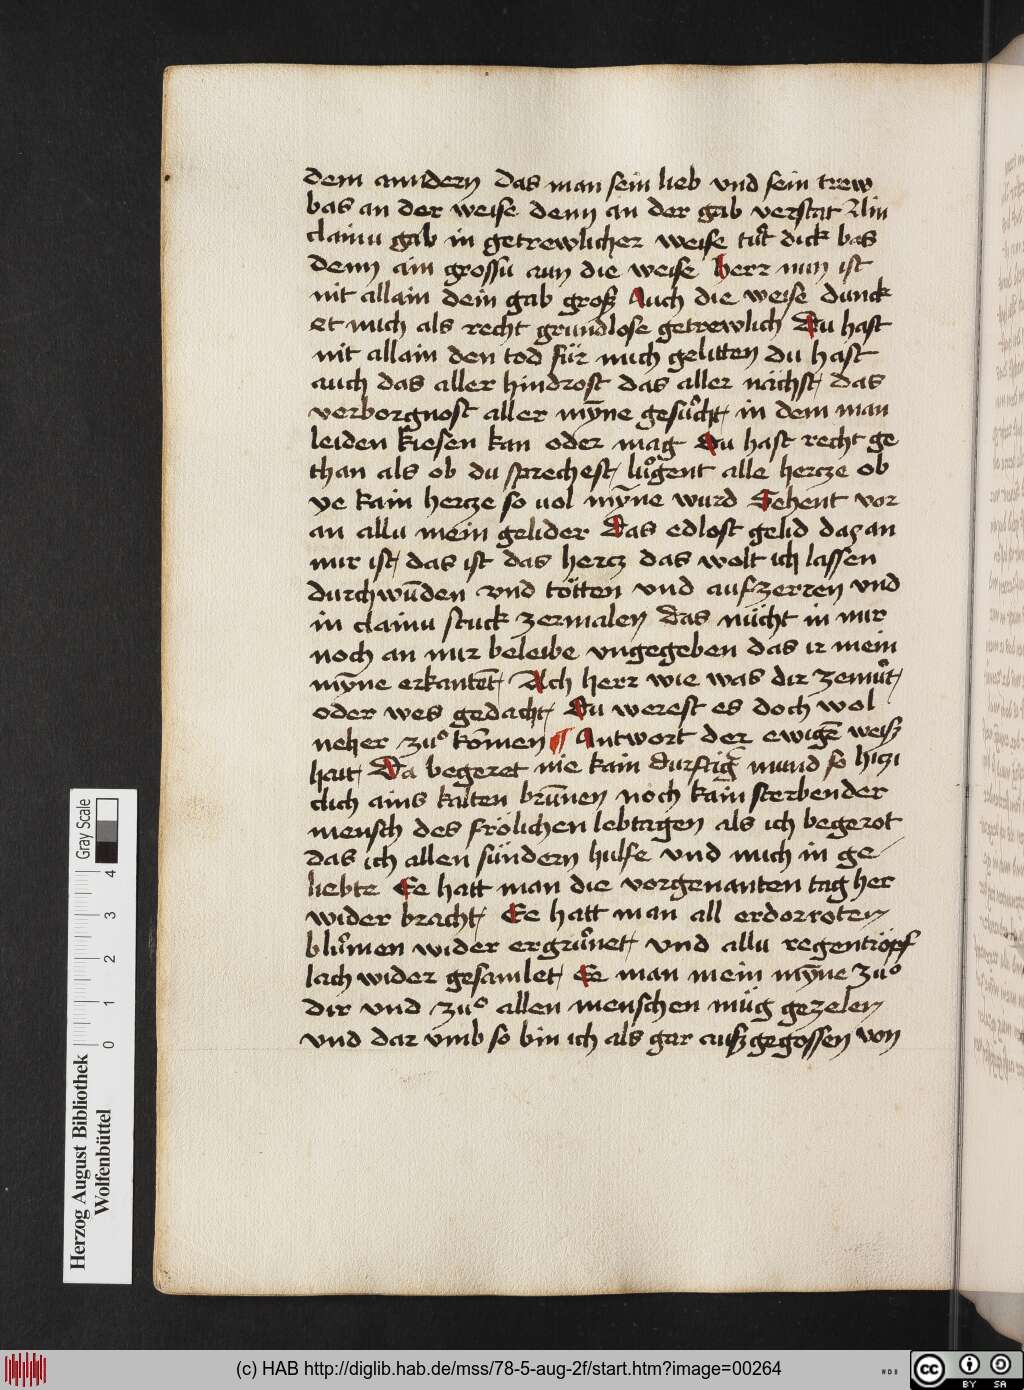 dem anndern das man sein lieb vnd sein trew
bas an der weise denn an der gab verstat Ain
clainu gab in getrewlicher weise tuͦt dick bas
denn ain grossu aun die weise herr nun ist
nit allain dein gab groß Auch die weise dunck
et mich als recht grundlose getrewlich Du hast
nit allain den tod für mich gelitten du hast
auch das aller hindrost das aller nächst, das
verborgnost aller mȳne gesuͦcht, in dem man
leiden kiesen kan oder mag Du hast recht ge
than als ob du sprechest, luͦgent alle hercze ob
ye kain hercze so uol mȳne wurd Sehent vor
an allu mein gelider Das edlost gelid daz an
mir ist, das ist das hercz das wolt ich lassen
durchwūden vnd tötten vnd aufzerren vnd
in clainu stuck zermalen das nücht in mir
noch an mir beleibe vngegeben das ir mein
mȳne erkantēt, Ach herr wie was dir zemuͦt,
oder wes gedacht, Du werest es doch wol
neher zuͦ kōmen ¶ Antwort der ewigē weiß
hait, Da begeret nie kain durstig mund so hizi
clich ains kalten brūnen noch kain sterbender
mensch des frölichen lebtagen als ich begerot
das ich allen sündern hulfe vnd mich in ge
liebte Ee hatt man die vorgenanten tag her
wider bracht, Ee hatt man all erdorroten
bluͦmen wider ergruͦnet, vnd allu regentröpf
lach wider gesamlet, Ee man mein mȳne zuͦ
dir vnd zuͦ allen menschen müg gezelen
vnd dar vmb so bin ich als gar außgegossen von
Herzog August Bibliothek
Wolfenbüttel
0 1 2 3 4
Gray Scale
(c) HAB http://diglib.hab.de/mss/78-5-aug-2f/start.htm?image=00264
WDB
cc BY SA